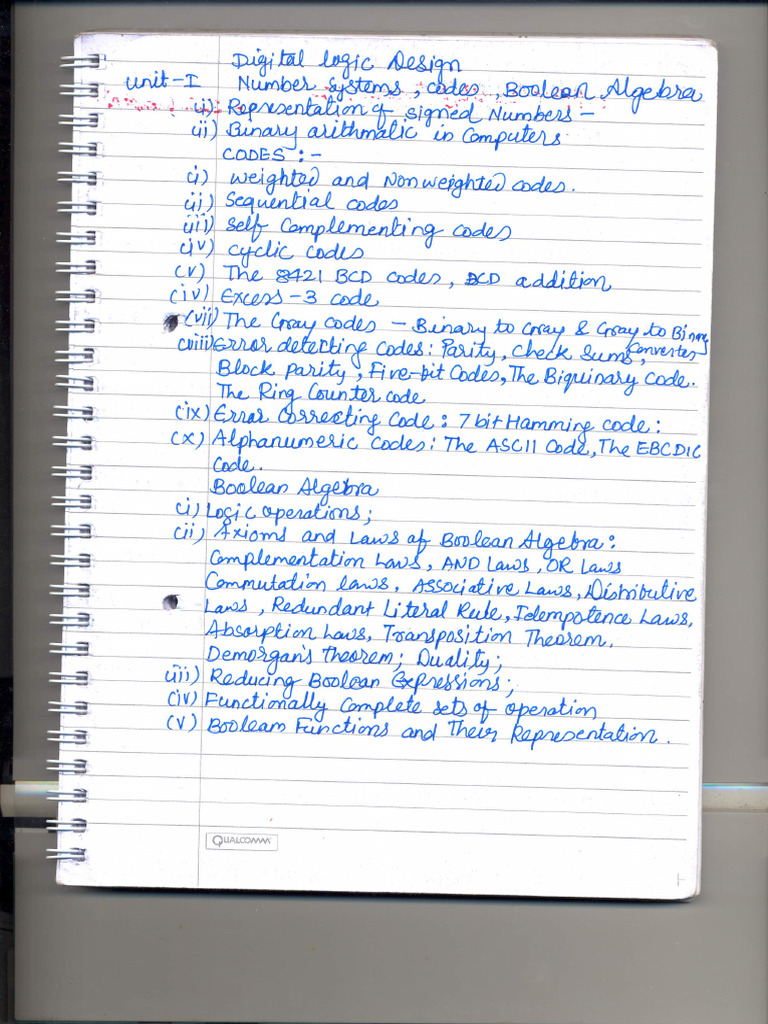 Digital Logic Design
Unit-I Number Systems, codes, Boolean Algebra
(i) Representation of signed Numbers -
(ii) Binary arithmatic in Computers
CODES :-
(i) weighted and Nonweighted codes.
(ii) Sequential codes
(iii) Self Complementing codes
(iv) cyclic codes
(v) The 8421 BCD codes, BCD addition
(iv) Excess-3 code
(vii) The Gray codes - Binary to Gray & Gray to Binary
Converter
(viii) Error detecting Codes: Parity, Check Sums,
Block parity, Five-bit Codes, The Biquinary Code.
The Ring Counter code
(ix) Error Correcting Code: 7 bit Hamming code:
(x) Alphanumeric Codes: The ASCII Code, The EBCDIC
Code.
Boolean Algebra
(i) Logic operations;
(ii) Axioms and Laws of Boolean Algebra:
Complementation Laws, AND Laws, OR Laws
Commutation laws, Associative Laws, Distributive
Laws, Redundant Literal Rule, Idempotence Laws,
Absorption Laws, Transposition Theorem,
Demorgan's Theorem; Duality;
(iii) Reducing Boolean Expressions;
(iv) Functionally Complete sets of operation
(v) Boolean Functions and Their Representation.
QUALCOMM